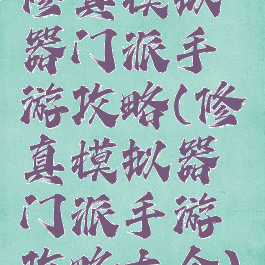 修真模拟
器门派手
游攻略(修
真模拟器
门派手游
攻略大全)